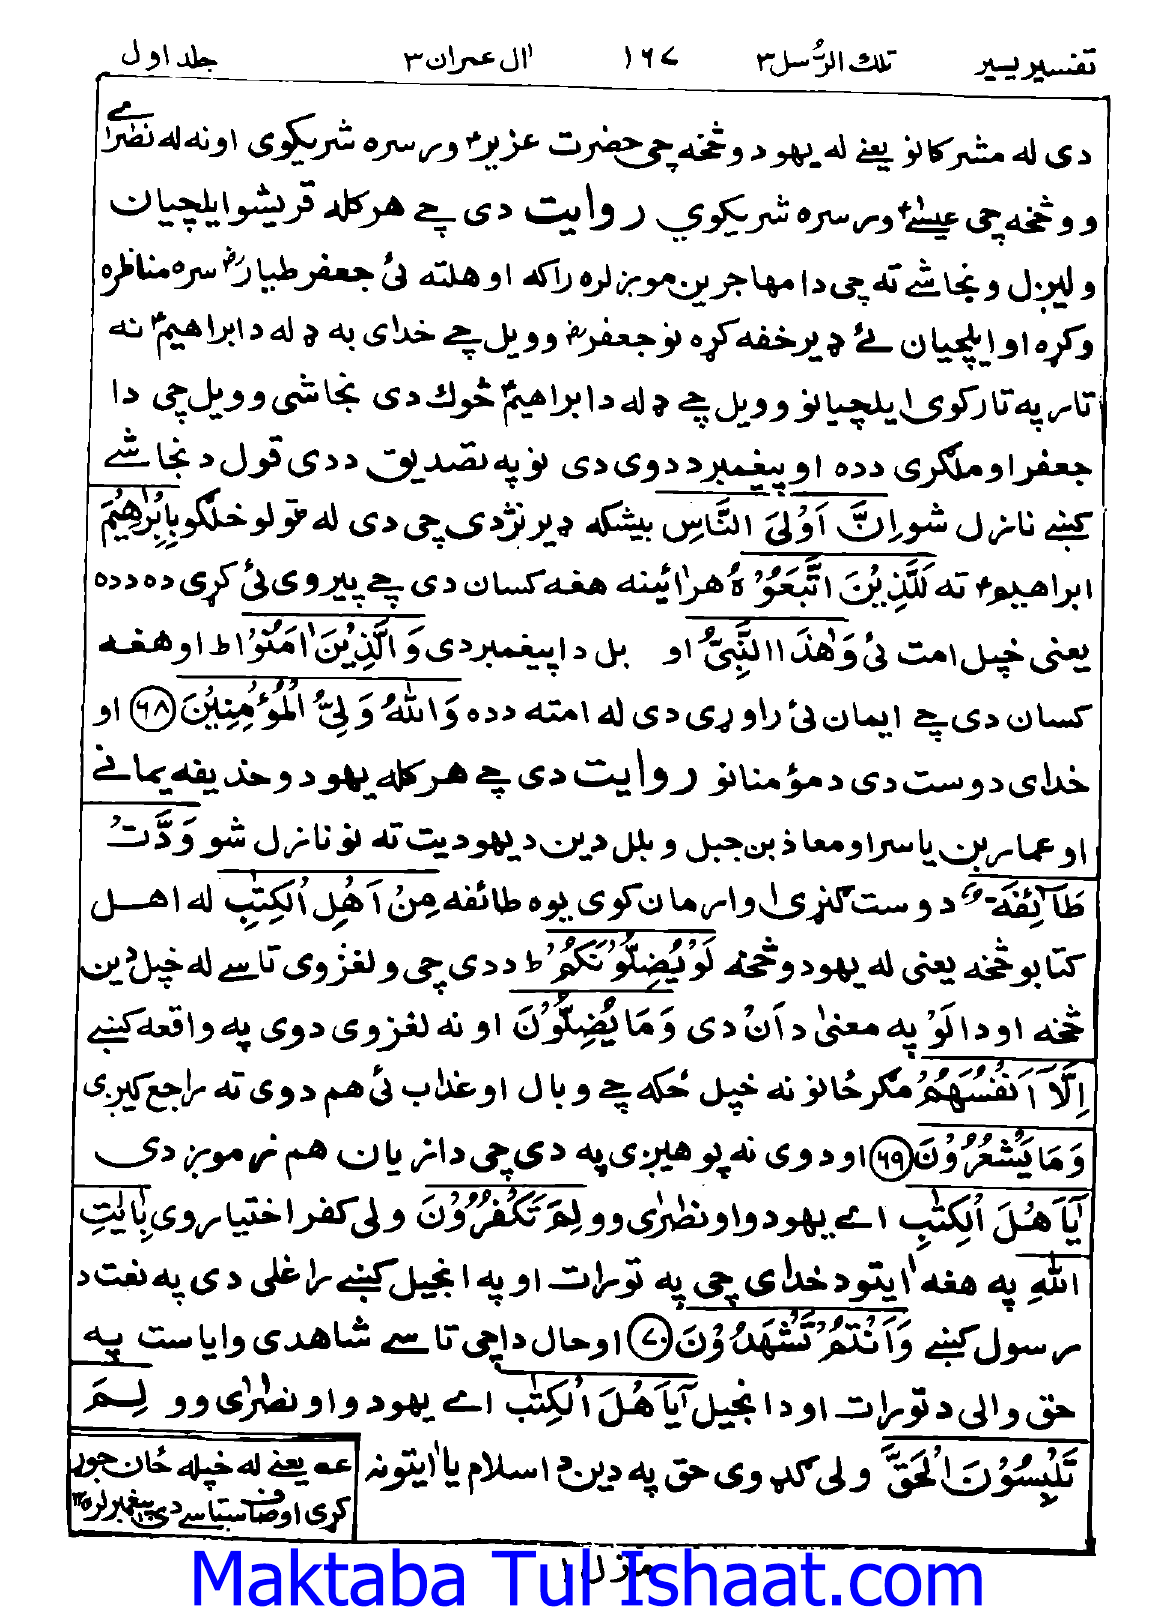 تفسير يسير تلك الرُّسل ٣ ١٦٧ اٰل عمران ٣ جلد اول
دی له مشركانو يعنے له يهود و څخه چی حضرت عزير ورسره شريكوی او نه له نصٰراے
وو څخه چی عيسٰے ورسره شريكوي روايت دی چے هركله قريشو ايلچيان
وليږل و نجاشے ته چی دا مهاجرين موږ لره راكه او هلته ئ جعفر طيار سره مناظره
وكړه او ايلچيان ئے ډير خفه كړه نو جعفر وويل چے خدای به ډله د ابراهيم نه
تار په تار كوی ايلچيانو وويل چے ډله د ابراهيم څوك دی نجاشی وويل چی دا
جعفر او ملګری دده او پيغمبر د دوی دی نو په تصديق ددی قول د نجاشے
كښے نازل شو اِنَّ اَوْلَی النَّاسِ بيشكه ډير نژدی چی دی له ټولو خلګو بِاِبْرٰهِيْمَ
ابراهيم ته لَلَّذِيْنَ اتَّبَعُوْهُ هرائينه هغه كسان دی چے پيروی ئ كړی ده دده
يعنی خپل امت ئ وَهٰذَا النَّبِیُّ او بل دا پيغمبر دی وَالَّذِيْنَ اٰمَنُوْا ط او هغه
كسان دی چے ايمان ئ راوړی دی له امته دده وَاللّٰهُ وَلِیُّ الْمُؤْمِنِيْنَ ﴿٦٨﴾ او
خدای دوست دی د مؤمنانو روايت دی چے هركله يهود و حذيفه يمانے
او عمار بن ياسر او معاذ بن جبل و بلل دين د يهوديت ته نو نازل شو وَدَّتْ
طَآئِفَةٌ دوست ګڼړی ا و ارمان كوی يوه طائفه مِنْ اَهْلِ الْكِتٰبِ له اهل
كتابو څخه يعنی له يهود و څخه لَوْ يُضِلُّوْنَكُمْ ط ددی چی و لغزوی تاسے له خپل دين
څخه او دا لَوْ په معنیٰ د اَنْ دی وَمَا يُضِلُّوْنَ او نه لغزوی دوی په واقعه كښے
اِلَّآ اَنْفُسَهُمْ مګر ځانو نه خپل ځكه چے وبال او عذاب ئ هم دوی ته راجع كيږی
وَمَا يَشْعُرُوْنَ ﴿٦٩﴾ او دوی نه پوهيږی په دی چی دا زيان هم زموږ دی
يٰٓاَهْلَ الْكِتٰبِ اے يهود و او نصٰرٰی وو لِمَ تَكْفُرُوْنَ ولی كفر اختياروی بِاٰيٰتِ
اللّٰهِ په هغه اٰيتو د خدای چی په تورات او په انجيل كښے راغلی دی په نعت د
رسول كښے وَاَنْتُمْ تَشْهَدُوْنَ ﴿٧٠﴾ او حال دا چی تاسے شاهدی واياست په
حق والی د تورات او د انجيل يٰٓاَهْلَ الْكِتٰبِ اے يهود و او نصٰرٰی وو لِمَ
تَلْبِسُوْنَ الْحَقَّ ولی ګډ وی حق په دين د اسلام يا اٰيتونه
عه يعنے له خپله ځان جوړ
كړی اوصاف
منزل ١
Maktaba Tul Ishaat.com